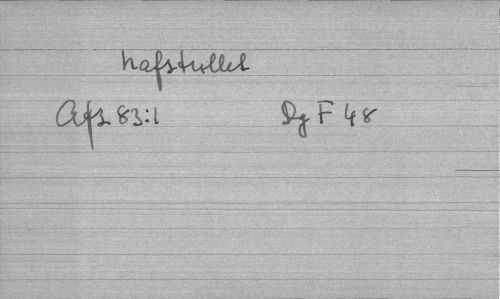 hafstrullet
Afs 83:1 Dg F 48